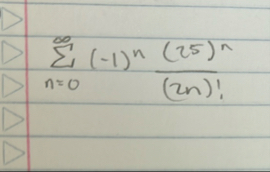 ∞∑n=0 (-1)^n (25)^n / (2n)!